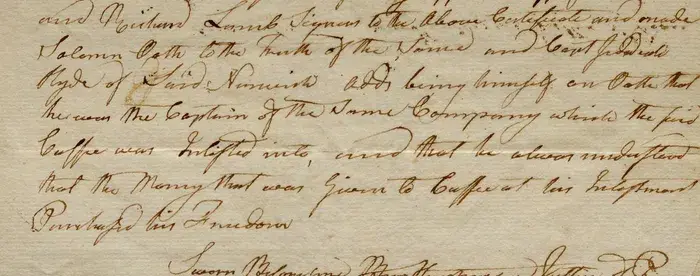 and Richard Lamb Signers to the Above Certificate and made
Solemn Oath to the Truth of the Same and Capt Jedidiah
Hyde of Said Norwich adds being himself on Oath that
he was the Captain of the Same Company which the said
Cuffee was Inlisted into, and that he always understood
that the Money that was Given to Cuffee at his Inlistment
Purchased his Freedom
Sworn Before me